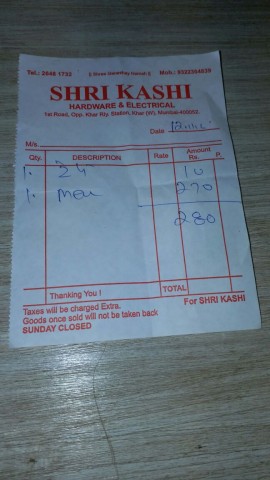 Tel.: 2648 1732 Mob.: 9322264639
SHRI KASHI
HARDWARE & ELECTRICAL
1st Road, Opp. Khar Rly. Station, Khar (W), Mumbai-400052.
Date
M/s.
Qty. DESCRIPTION Rate Amount Rs. P.
1. 24 10
1. 270
280
Thanking You ! TOTAL
Taxes will be charged Extra. For SHRI KASHI
Goods once sold will not be taken back
SUNDAY CLOSED